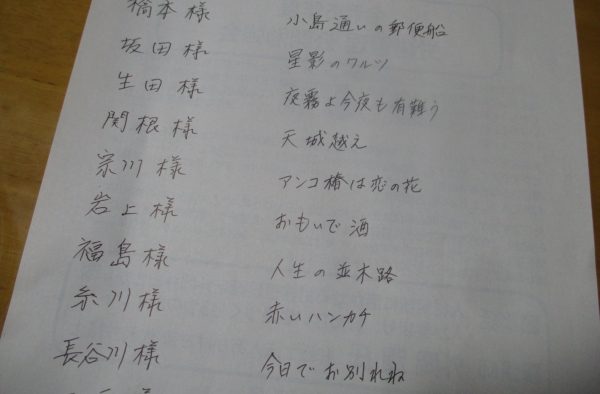 橋本様 小島通いの郵便船
坂田様 星影のワルツ
生田様 夜霧よ今夜も有難う
関根様 天城越え
宗川様 アンコ椿は恋の花
岩上様 おもいで酒
福島様 人生の並木路
糸川様 赤いハンカチ
長谷川様 今日でお別れね